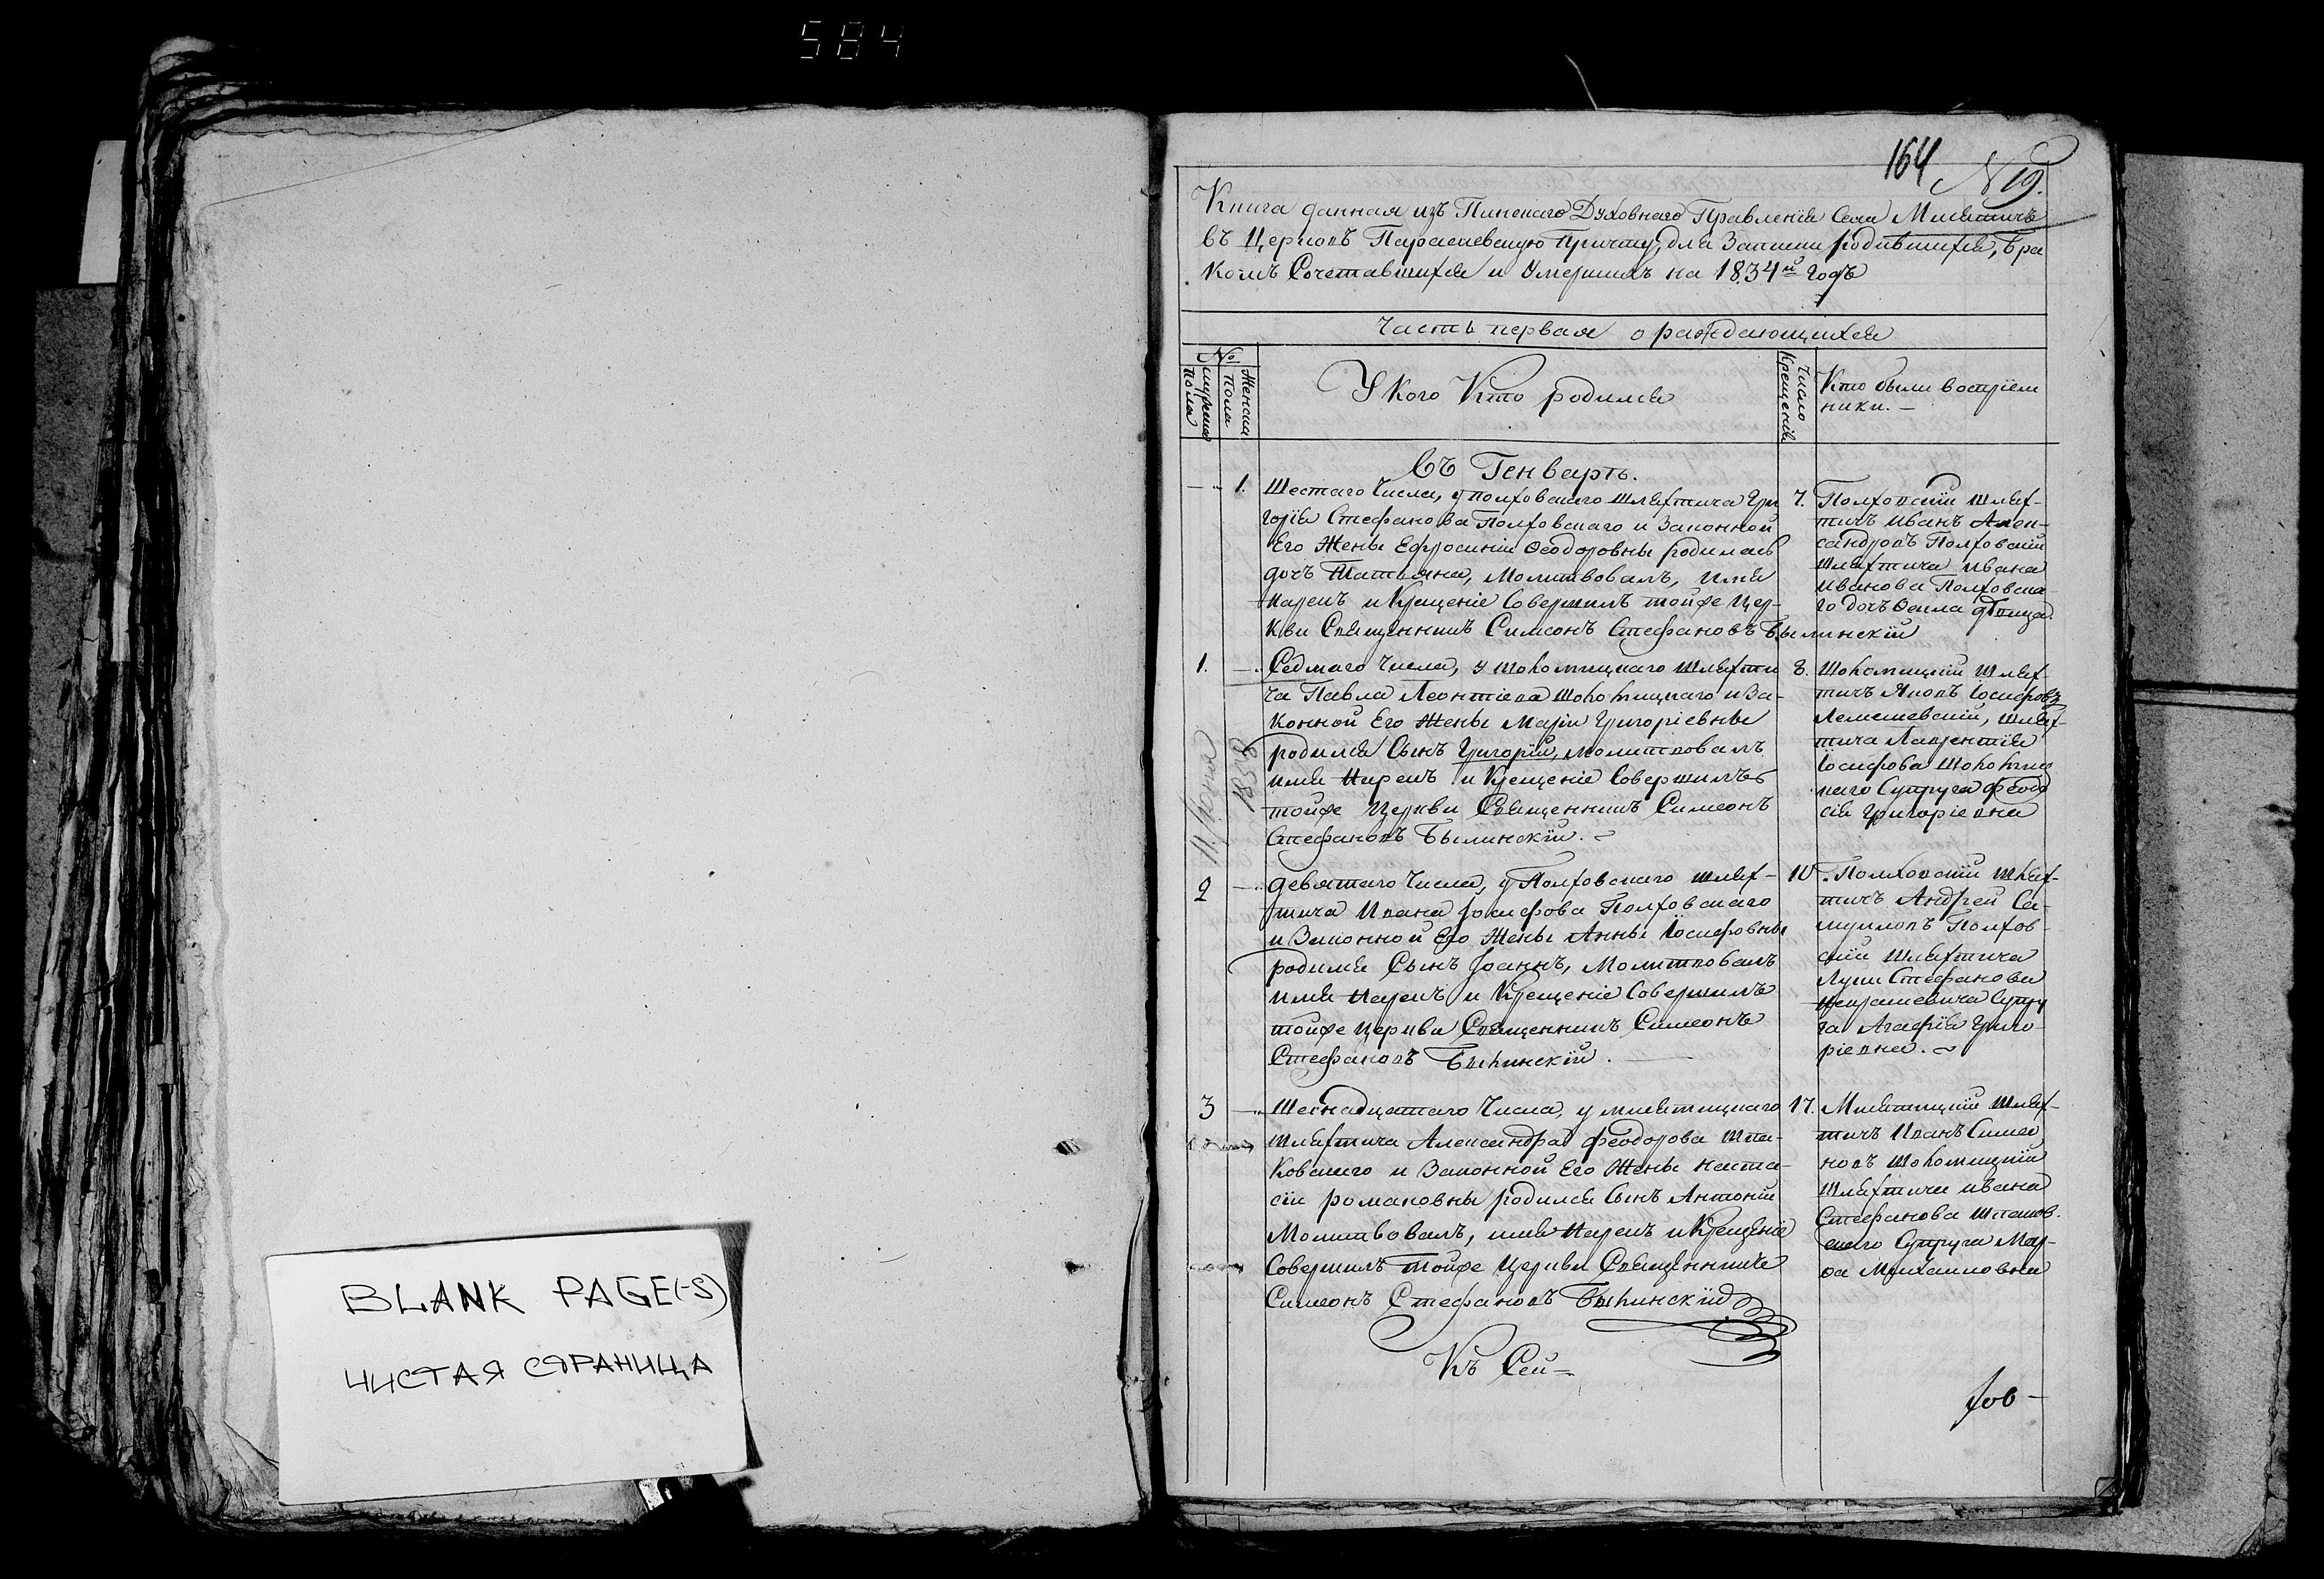 584
BLANK PAGE(-S)
ЧИСТАЯ СТРАНИЦА
164 N 19.
Книга данная изъ Пинскаго Духовнаго Правленія Села Мнятичъ
въ Церковъ Параскевскую Причту, для Записки родившихся, Бра
комъ Сочетавшихся и Умершихъ на 1834й годъ
Часть первая о раждающихся
№
мужеска пола
Женска пола
У Кого Кто родился
Число Крещенія
Кто были воспріем
ники. —
Въ Генварѣ.
1.
Шестаго Числа, у полховскаго шляхтича Гри
горія Стефанова Полховскаго и Законной
Его Жены Ефросиніи Ѳеодоровны родилась
дочъ Татьяна, Молитвовалъ, имя
нарекъ и Крещеніе Совершилъ тойже Цер-
кви Священникъ Симеонъ Стефановъ Былинскій
7.
Полховскій шлях-
тичъ Иванъ Алек-
сандровъ Полховскій
шляхтича Ивана
Иванова Полховска
го дочъ Ѳекла
1.
Седмаго Числа, у шоломицкаго шляхти
ча Павла Леонтіева шоломицкаго и За-
конной Его Жены Маріи Григоріевны
родился Сынъ Григорій, молитвовалъ
имя Нарекъ и Крещеніе Совершилъ
тойже Церкви Священникъ Симеонъ
Стефановъ Былинскій.
8.
Шоломицкій Шлях-
тичъ Яковъ Іосифовъ
Лемешевскій, шлях-
тича Лаврентія
Іосифова Шоломиц
каго Супруга Феодо
сія Григоріевна
1858
2
девятаго Числа, у Полховскаго шлях-
тича Ивана Іосифова Полховскаго
и Законной Его Жены Анны Іосифовны
родился Сынъ Іоаннъ, Молитвовалъ
имя Нарекъ и Крещеніе Совершилъ
тойже Церкви Священникъ Симеонъ
Стефановъ Былинскій.
10.
Полховскій шлях-
тичъ Андрей Са-
муиловъ Полхов-
скій шляхтича
Луки Стефанова
Супру
га Агафія Григо-
ріевна.
3
Шеснадцатаго Числа, у мнятицкаго
шляхтича Александра Феодорова Шпа-
ковскаго и Законной Его Жены Наста-
сіи романовны родился Сынъ Антоній
Молитвовалъ, имя Нарекъ и Крещеніе
Совершилъ Тойже Церкви Священникъ
Симеонъ Стефановъ Былинскій
17.
Мнятицкій шлях-
тичъ Иванъ Симео
новъ Шоломицкій
Шляхтича ивана
Стефанова Шпаков-
скаго Супруга Мар-
ѳа Михаиловна
Къ Сей =